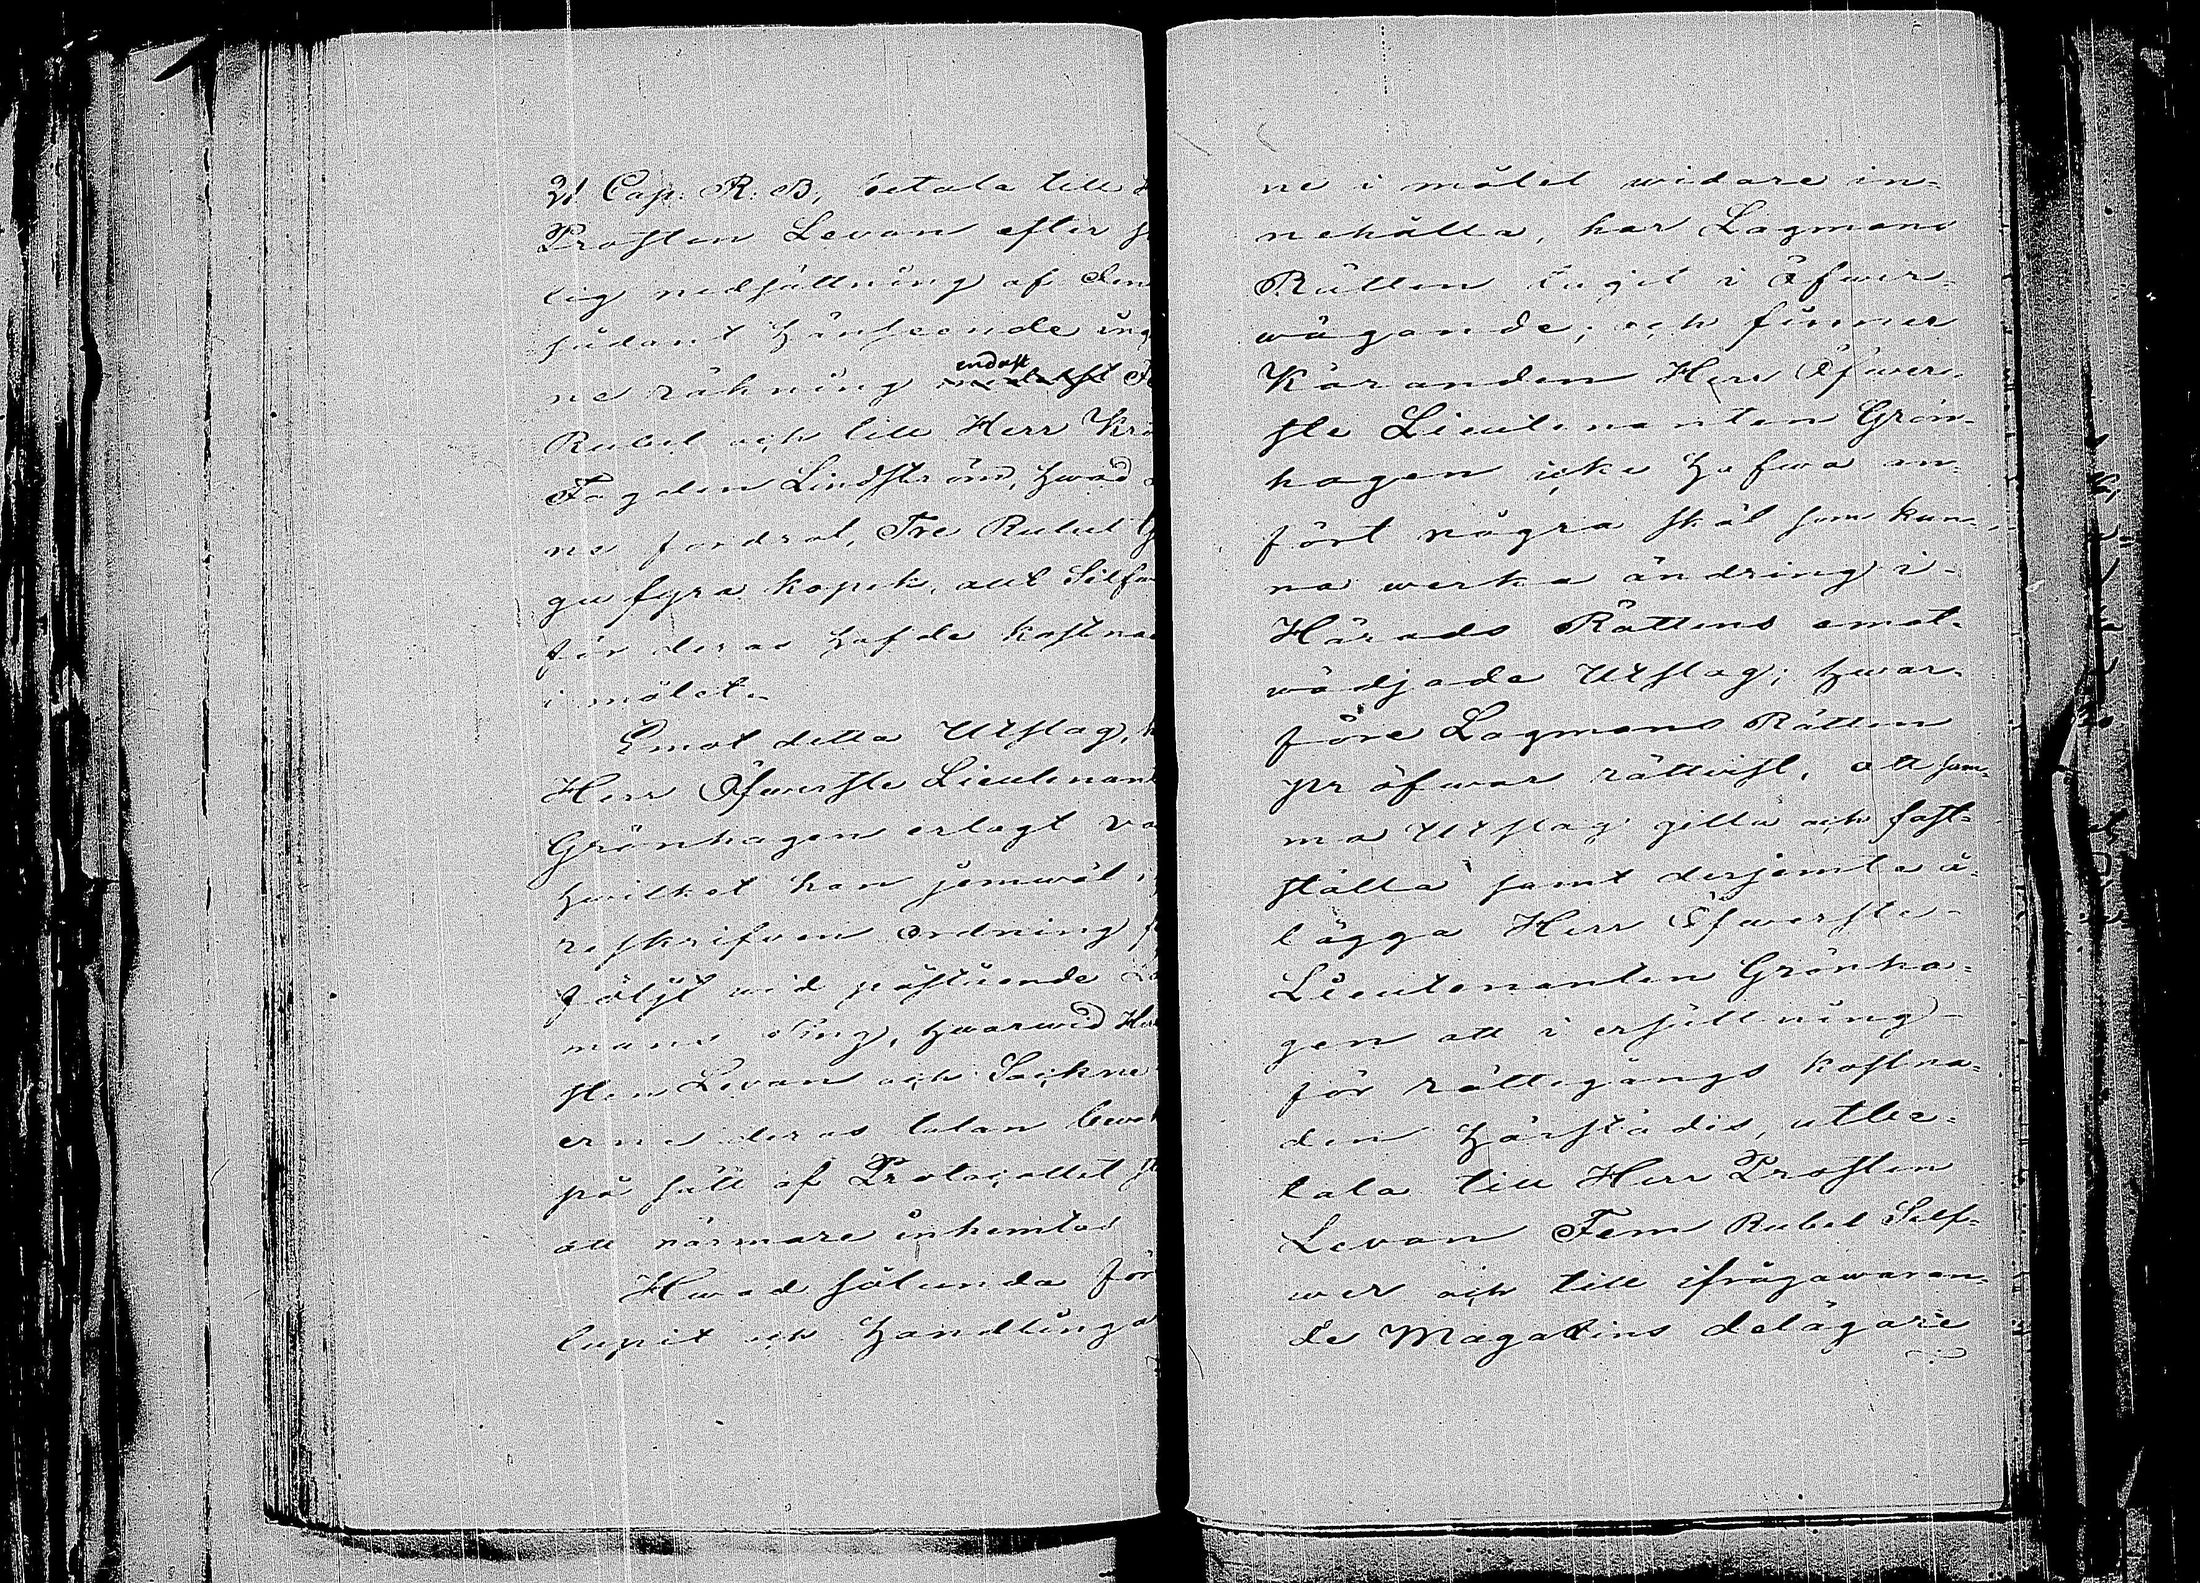 21 Cap. R. B, betala till
Prosten Levan efter
lig nedsättning af den
sådant hänseende
ne räkning endast
Rubel och till Herr
Fogden Lindström, hwad
ne fordrat, Tre Rubel
gu fyra kopek, allt Silf
för deras hafde kostna
i målet.
Emot detta Utslag,
Herr Öfwerste Lieutenant
Grönhagen erlagt va
hwilket han jemwäl i
reskrifven ordning
följt wid påstående
mans Ting, hwarwid Her
sten Levan och Sockne
erne deras talan bewa
på sätt af Protocollet
att närmare inhemtas
Hwad sålunda för
lupit och Handlinga
ne i målet widare in=
nehålla, har Lagmans
Rätten tagit i öfwer=
wägande; och finner
Käranden Herr Öfwer=
ste Lieutenanten Grön=
hagen icke hafwa an=
fört några skäl som kun=
na werka ändring i
Härads Rättens emot=
wädjade Utslag; hwar=
före Lagmans Rätten
pröfwar rättvist, att sam=
ma Utslag gilla och fast=
ställa samt derjemte å=
lägga Herr Öfwerste
Lieutenanten Grönha=
gen att i ersättning
för rättegångs kostna=
den härstädes, utbe=
tala till Herr Prosten
Levan Fem Rubel Silf=
wer och till ifrågawaran=
de Magasins delägare